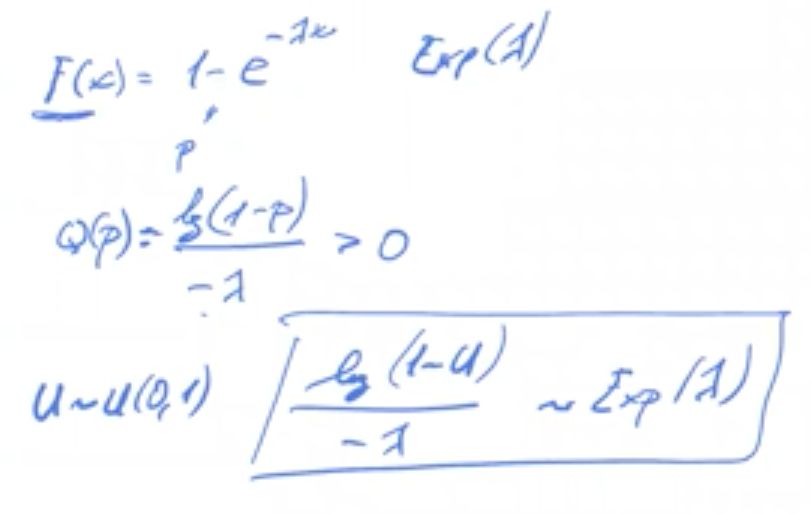 F(x) = 1 - e^{-λx} Exp(λ)
p
Q(p) = log(1-p) / -λ > 0
U ~ U(0,1) log(1-U) / -λ ~ Exp(λ)